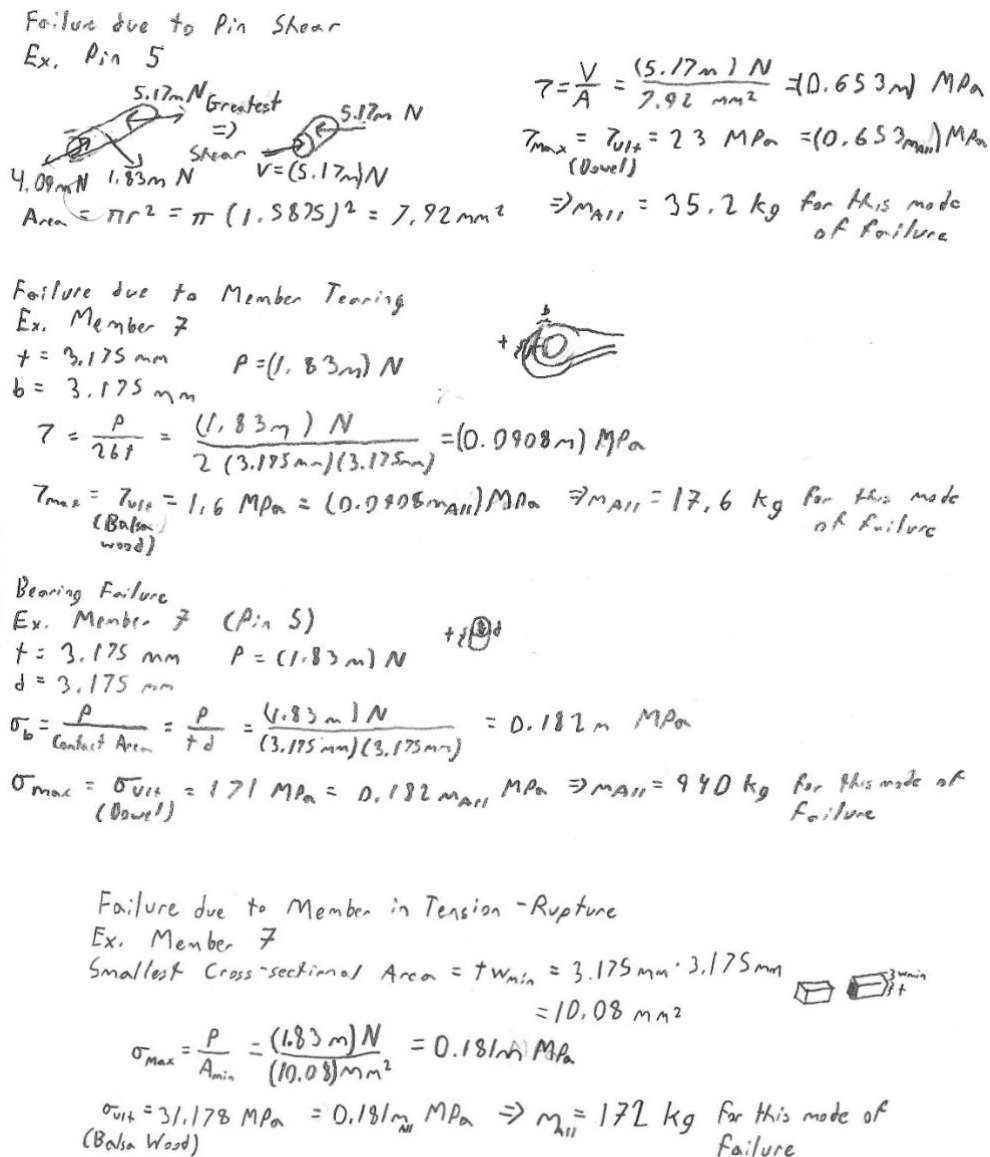 Failure due to Pin Shear
Ex. Pin 5
5.17m N Greatest ⇒ Shear 5.17m N
4.09m N 1.83m N V=(5.17m)N
Area = πr² = π (1.5875)² = 7.92 mm²
τ = V/A = (5.17m) N / 7.92 mm² = (0.653m) MPa
τmax = τult = 23 MPa = (0.653mAll) MPa
(Dowel)
⇒ mAll = 35.2 kg for this mode of failure
Failure due to Member Tearing
Ex. Member 7
t = 3.175 mm P = (1.83m) N
b = 3.175 mm
b
t
τ = P/2bt = (1.83m) N / 2 (3.175mm)(3.175mm) = (0.0908m) MPa
τmax = τult = 1.6 MPa = (0.0908mAll) MPa ⇒ mAll = 17.6 kg for this mode of failure
(Balsa wood)
Bearing Failure
Ex. Member 7 (Pin 5)
t = 3.175 mm P = (1.83m) N
d = 3.175 mm
t d
σb = P/Contact Area = P/td = (1.83m) N / (3.175mm)(3.175mm) = 0.182m MPa
σmax = σult = 171 MPa = 0.182 mAll MPa ⇒ mAll = 940 kg for this mode of failure
(Dowel)
Failure due to Member in Tension - Rupture
Ex. Member 7
Smallest Cross-sectional Area = t wmin = 3.175mm · 3.175mm
= 10.08 mm²
wmin
t
σmax = P/Amin = (1.83m) N / (10.08) mm² = 0.181m MPa
σult = 31.178 MPa = 0.181mAll MPa ⇒ mAll = 172 kg for this mode of failure
(Balsa Wood)